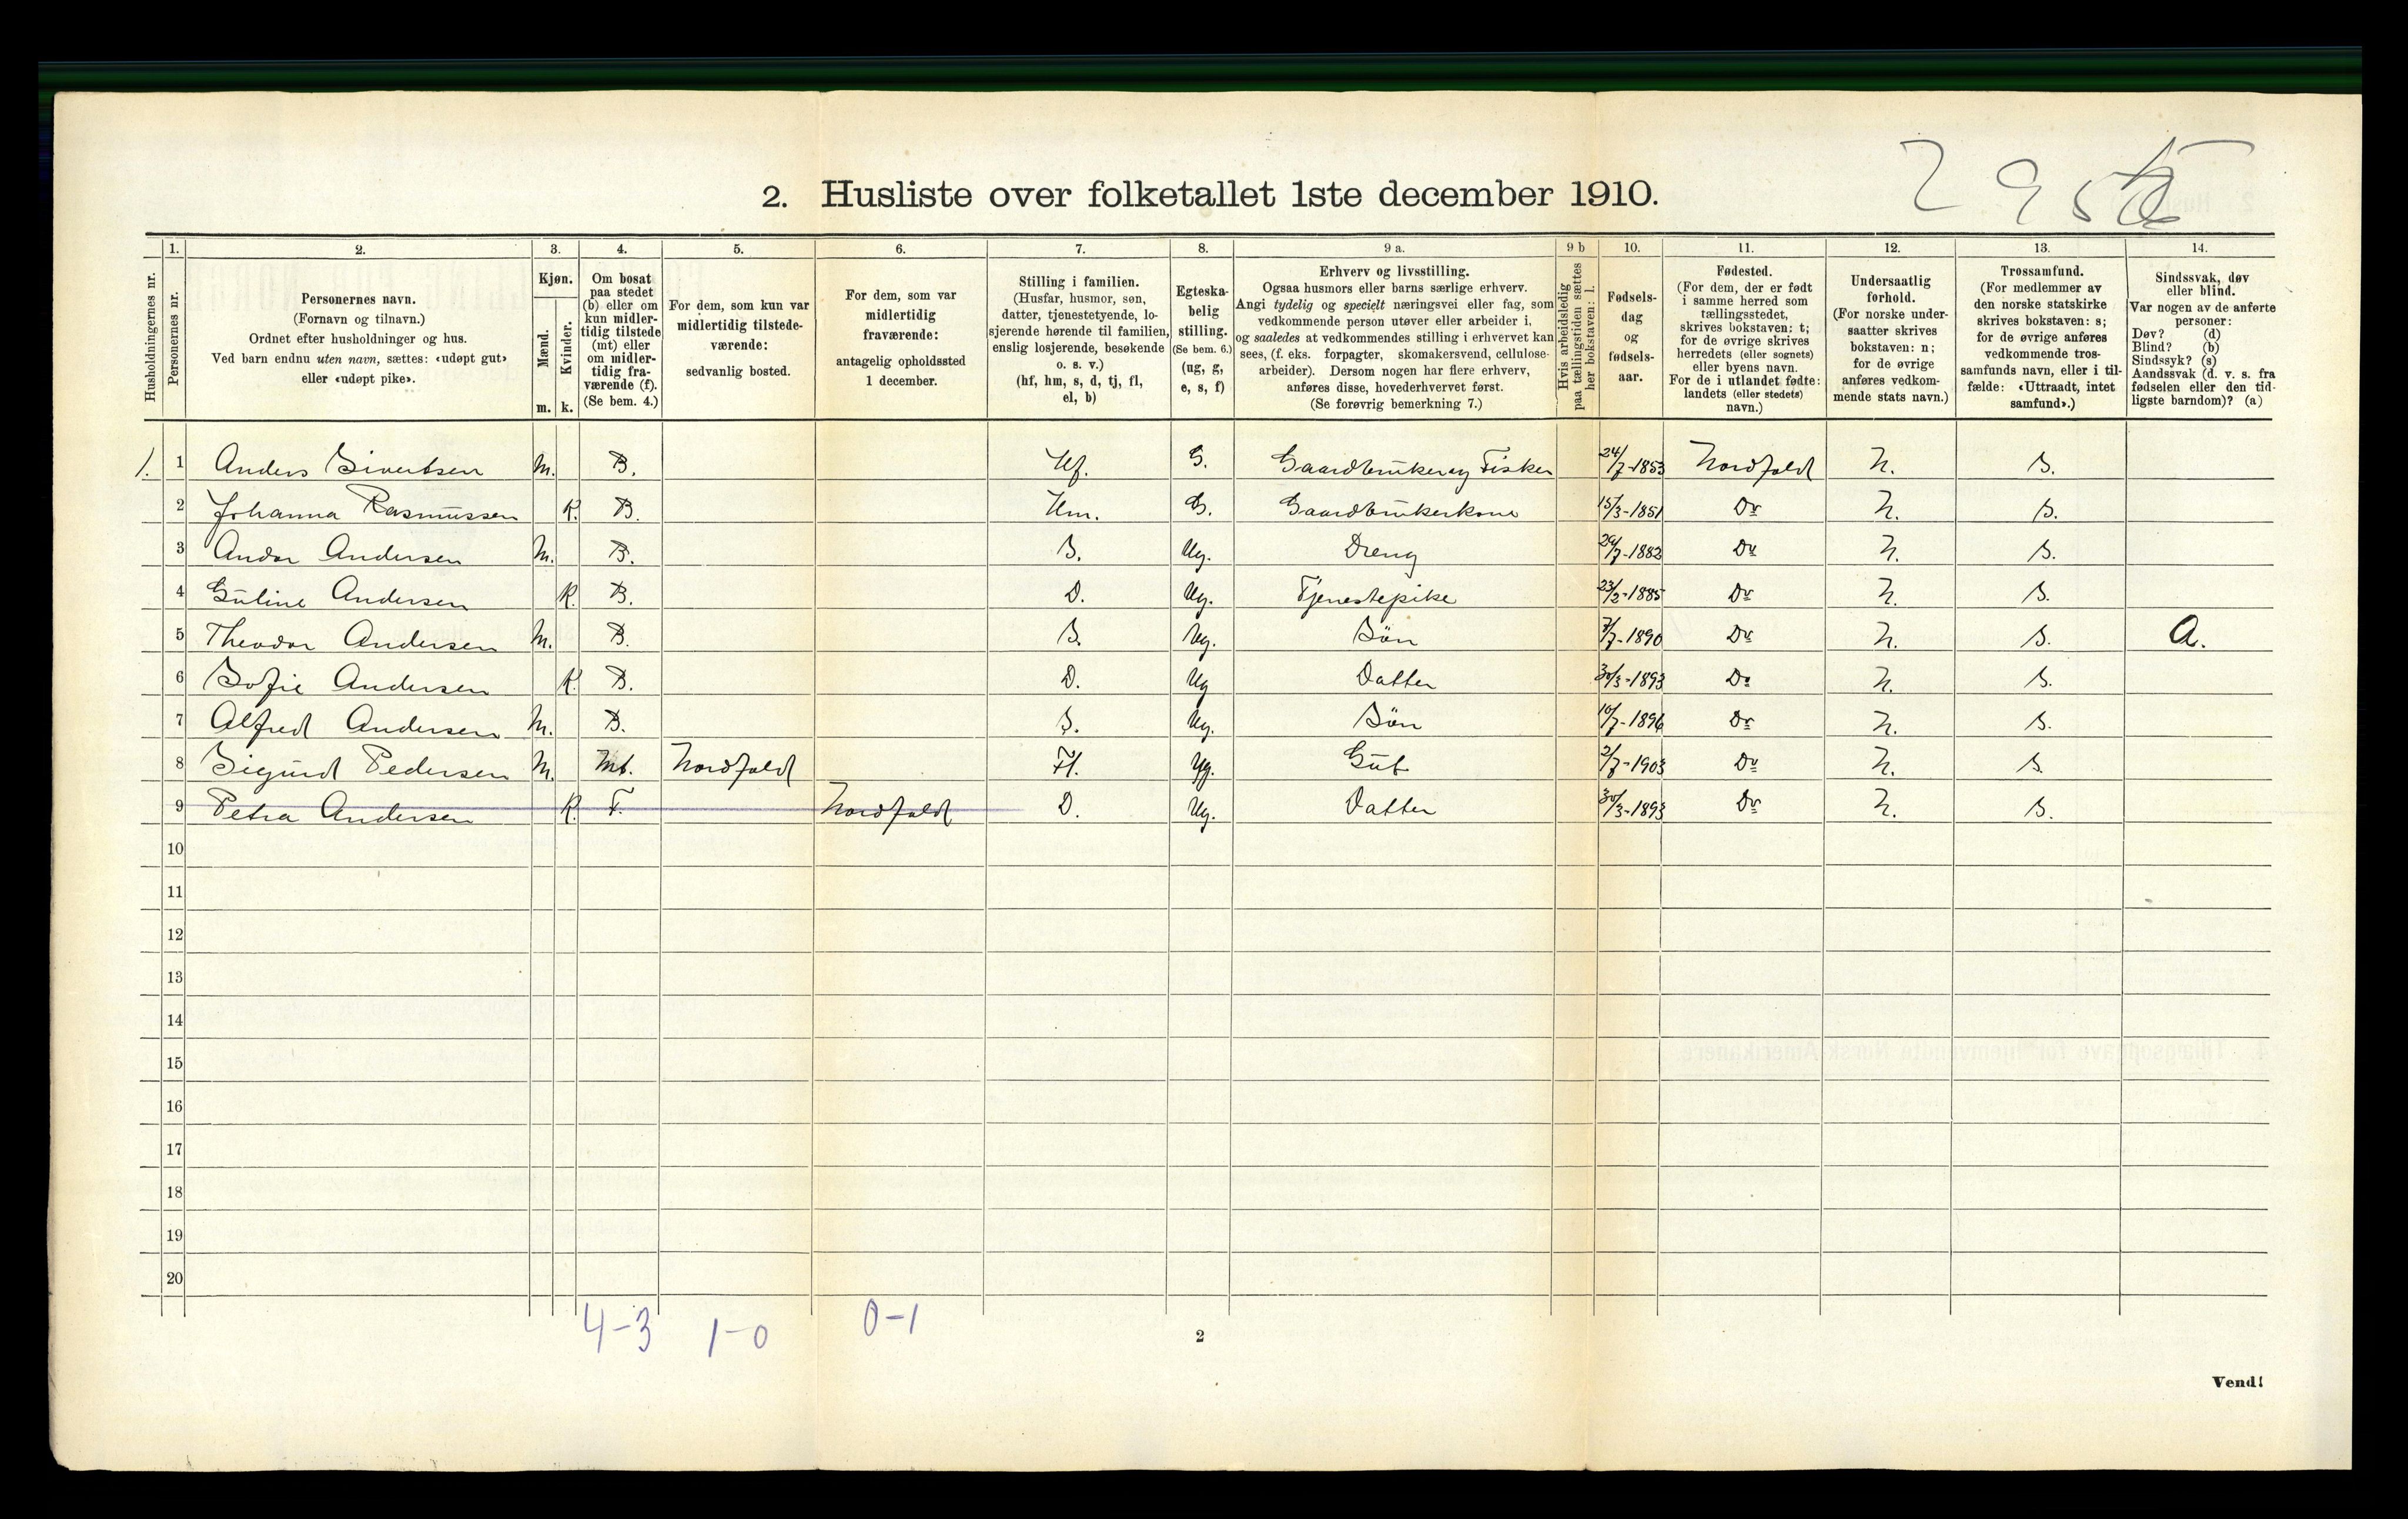 2. Husliste over folketallet 1ste december 1910.
Husholdningernes nr.
1. Personernes nr.
2. Personernes navn.
(Fornavn og tilnavn.)
Ordnet efter husholdninger og hus.
Ved barn endnu uten navn, sættes: «udøpt gut»
eller «udøpt pike».
3. Kjøn.
Mænd. Kvinder.
m. k.
4. Om bosat
paa stedet
(b) eller om
kun midler-
tidig tilstede
(mt) eller
om midler-
tidig fra-
værende (f).
(Se bem. 4.)
5. For dem, som kun var
midlertidig tilstede-
værende:
sedvanlig bosted.
6. For dem, som var
midlertidig
fraværende:
antagelig opholdssted
1 december.
7. Stilling i familien.
(Husfar, husmor, søn,
datter, tjenestetyende, lo-
sjerende hørende til familien,
enslig losjerende, besøkende
o. s. v.)
(hf, hm, s, d, tj, fl,
el, b)
8. Egteska-
belig
stilling.
(Se bem. 6.)
(ug, g,
e, s, f)
9 a. Erhverv og livsstilling.
Ogsaa husmors eller barns særlige erhverv.
Angi tydelig og specielt næringsvei eller fag, som
vedkommende person utøver eller arbeider i,
og saaledes at vedkommendes stilling i erhvervet kan
sees, (f. eks. forpagter, skomakersvend, cellulose-
arbeider). Dersom nogen har flere erhverv,
anføres disse, hovederhvervet først.
(Se forøvrig bemerkning 7.)
9 b Hvis arbeidsledig
paa tællingstiden sættes
her bokstaven: l.
10. Fødsels-
dag
og
fødsels-
aar.
11. Fødested.
(For dem, der er født
i samme herred som
tællingsstedet,
skrives bokstaven: t;
for de øvrige skrives
herredets (eller sognets)
eller byens navn.
For de i utlandet fødte:
landets (eller stedets)
navn.)
12. Undersaatlig
forhold.
(For norske under-
saatter skrives
bokstaven: n;
for de øvrige
anføres vedkom-
mende stats navn.)
13. Trossamfund.
(For medlemmer av
den norske statskirke
skrives bokstaven: s;
for de øvrige anføres
vedkommende tros-
samfunds navn, eller i til-
fælde: «Uttraadt, intet
samfund».)
14. Sindssvak, døv
eller blind.
Var nogen av de anførte
personer:
Døv? (d)
Blind? (b)
Sindssyk? (s)
Aandssvak (d. v. s. fra
fødselen eller den tid-
ligste barndom)? (a)
1. 1 Anders Sivertsen M. B. Hf. G. Gaardbruker og Fisker 24/7-1853 Nordfold N. S.
2 Johanna Rasmussen K. B. Hm. G. Gaardbrukerkone 15/3-1851 Do N. S.
3 Andor Andersen M. B. S. Ug. Dreng 29/7-1882 Do N. S.
4 Guline Andersen K. B. D. Ug. Tjenestepike 23/2-1885 Do N. S.
5 Theodor Andersen M. B. S. Ug. Sön 7/7-1890 Do N. S. A.
6 Sofie Andersen K. B. D. Ug Datter 30/3-1893 Do N. S.
7 Alfred Andersen M. B. S. Ug. Sön 10/7-1896 Do N. S.
8 Sigurd Pedersen M. Mt. Nordfold Fl. Ug. Gut 2/7-1903 Do N. S.
9 Petra Andersen K. F. Nordfold D. Ug. Datter 30/3-1893 Do N. S.
10
11
12
13
14
15
16
17
18
19
20
4-3 1-0 0-1
2
Vend!